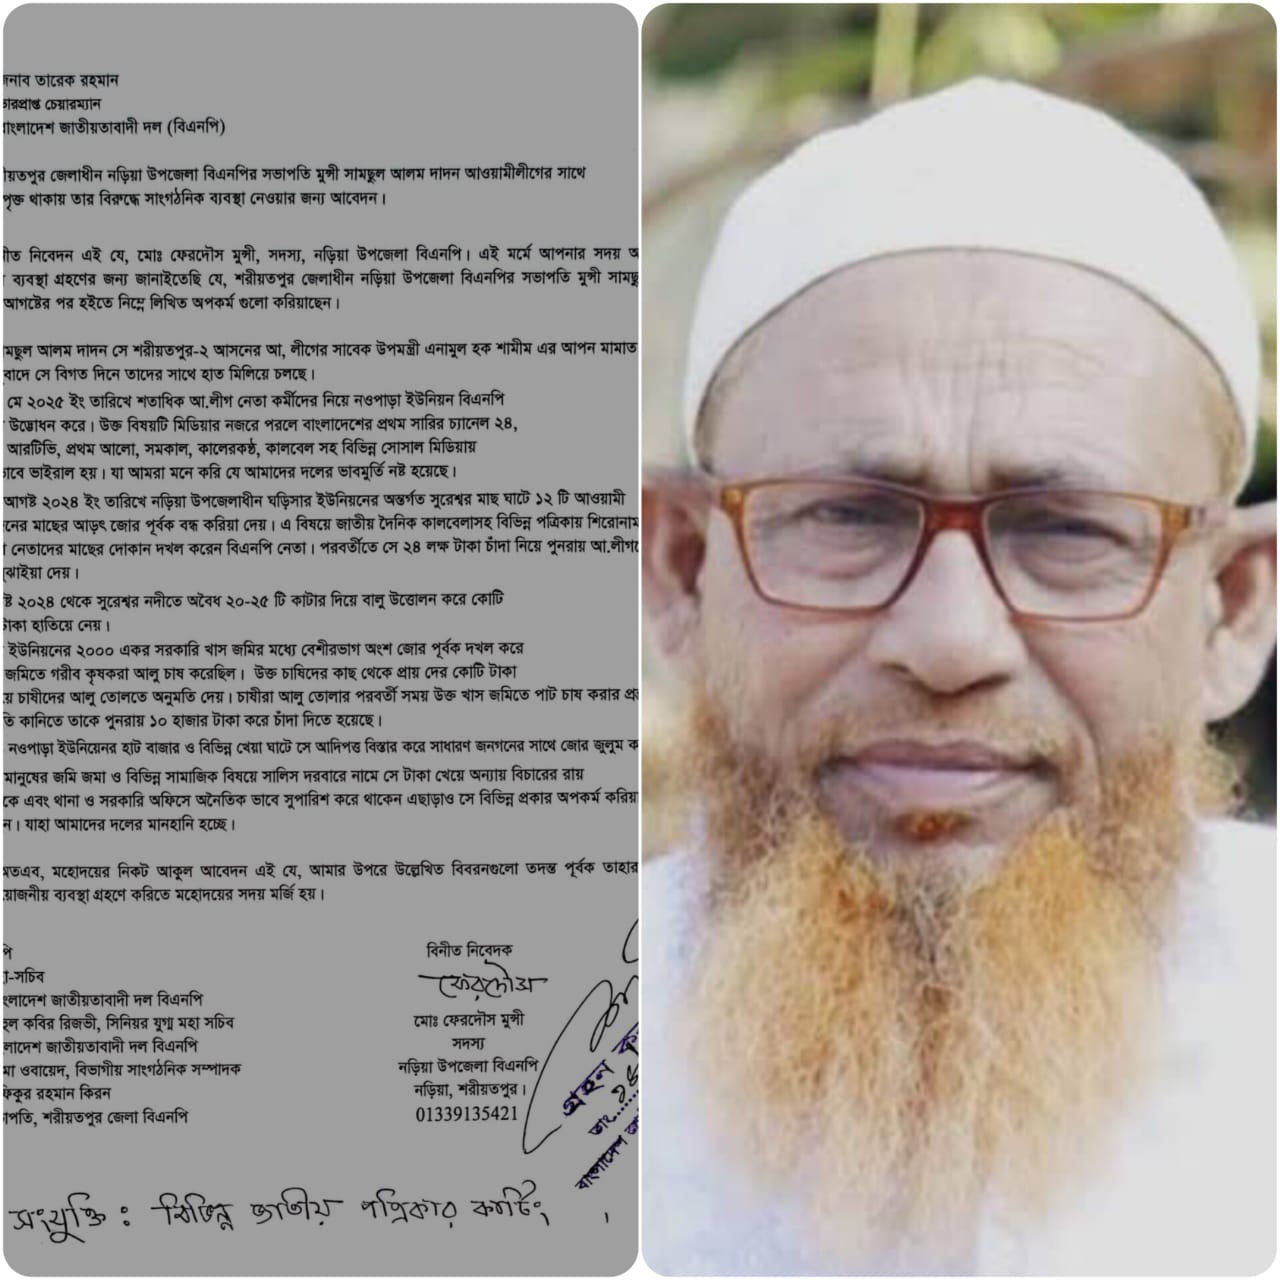 জনাব তারেক রহমান
ভারপ্রাপ্ত চেয়ারম্যান
বাংলাদেশ জাতীয়তাবাদী দল (বিএনপি)
নড়িয়া উপজেলা বিএনপির সভাপতি মুন্সী সামছুল আলম দাদন আওয়ামীলীগের সাথে
থাকায় তার বিরুদ্ধে সাংগঠনিক ব্যবস্থা নেওয়ার জন্য আবেদন।
নিবেদন এই যে, মোঃ ফেরদৌস মুন্সী, সদস্য, নড়িয়া উপজেলা বিএনপি। এই মর্মে আপনার সদয়
ব্যবস্থা গ্রহণের জন্য জানাইতেছি যে, শরীয়তপুর জেলাধীন নড়িয়া উপজেলা বিএনপির সভাপতি মুন্সী
আগষ্টের পর হইতে নিম্নে লিখিত অপকর্ম গুলো করিয়াছেন।
আলম দাদন সে শরীয়তপুর-২ আসনের আ, লীগের সাবেক উপমন্ত্রী এনামুল হক শামীম এর আপন মামাত
সে বিগত দিনে তাদের সাথে হাত মিলিয়ে চলছে।
মে ২০২৫ ইং তারিখে শতাধিক আ.লীগ নেতা কর্মীদের নিয়ে নওপাড়া ইউনিয়ন বিএনপি
উদ্ভোধন করে। উক্ত বিষয়টি মিডিয়ার নজরে পরলে বাংলাদেশের প্রথম সারির চ্যানেল ২৪,
আরটিভি, প্রথম আলো, সমকাল, কালেরকণ্ঠ, কালবেল সহ বিভিন্ন সোসাল মিডিয়ায়
ভাইরাল হয়। যা আমরা মনে করি যে আমাদের দলের ভাবমুর্তি নষ্ট হয়েছে।
আগষ্ট ২০২৪ ইং তারিখে নড়িয়া উপজেলাধীন ঘড়িসার ইউনিয়নের অন্তর্গত সুরেশ্বর মাছ ঘাটে ১২ টি আওয়ামী
মাছের আড়ৎ জোর পূর্বক বন্ধ করিয়া দেয়। এ বিষয়ে জাতীয় দৈনিক কালবেলাসহ বিভিন্ন পত্রিকায় শিরোনাম
নেতাদের মাছের দোকান দখল করেন বিএনপি নেতা। পরবর্তীতে সে ২৪ লক্ষ টাকা চাঁদা নিয়ে পুনরায়
দেয়।
২০২৪ থেকে সুরেশ্বর নদীতে অবৈধ ২০-২৫ টি কাটার দিয়ে বালু উত্তোলন করে কোটি
টাকা হাতিয়ে নেয়।
ইউনিয়নের ২০০০ একর সরকারি খাস জমির মধ্যে বেশীরভাগ অংশ জোর পূর্বক দখল করে
জমিতে গরীব কৃষকরা আলু চাষ করেছিল। উক্ত চাষিদের কাছ থেকে প্রায় দের কোটি টাকা
চাষীদের আলু তোলতে অনুমতি দেয়। চাষীরা আলু তোলার পরবর্তী সময় উক্ত খাস জমিতে পাট চাষ করার
কানিতে তাকে পুনরায় ১০ হাজার টাকা করে চাঁদা দিতে হয়েছে।
নওপাড়া ইউনিয়েনর হাট বাজার ও বিভিন্ন খেয়া ঘাটে সে আদিপত্ত বিস্তার করে সাধারণ জনগনের সাথে জোর জুলুম
মানুষের জমি জমা ও বিভিন্ন সামাজিক বিষয়ে সালিস দরবারে নামে সে টাকা খেয়ে অন্যায় বিচারের রায়
এবং থানা ও সরকারি অফিসে অনৈতিক ভাবে সুপারিশ করে থাকেন এছাড়াও সে বিভিন্ন প্রকার অপকর্ম
যাহা আমাদের দলের মানহানি হচ্ছে।
মহোদয়ের নিকট আকুল আবেদন এই যে, আমার উপরে উল্লেখিত বিবরনগুলো তদন্ত পূর্বক তাহার
ব্যবস্থা গ্রহণে করিতে মহোদয়ের সদয় মর্জি হয়।
বিনীত নিবেদক
ফেরদৌস
মোঃ ফেরদৌস মুন্সী
সদস্য
নড়িয়া উপজেলা বিএনপি
নড়িয়া, শরীয়তপুর।
01339135421
মহা-সচিব
বাংলাদেশ জাতীয়তাবাদী দল বিএনপি
কবির রিজভী, সিনিয়র যুগ্ম মহা সচিব
বাংলাদেশ জাতীয়তাবাদী দল বিএনপি
ওবায়েদ, বিভাগীয় সাংগঠনিক সম্পাদক
রহমান কিরন
সভাপতি, শরীয়তপুর জেলা বিএনপি
গ্রহন
তাং
বাংলাদেশ
সংযুক্তি : বিভিন্ন জাতীয় পত্রিকার কাটিং